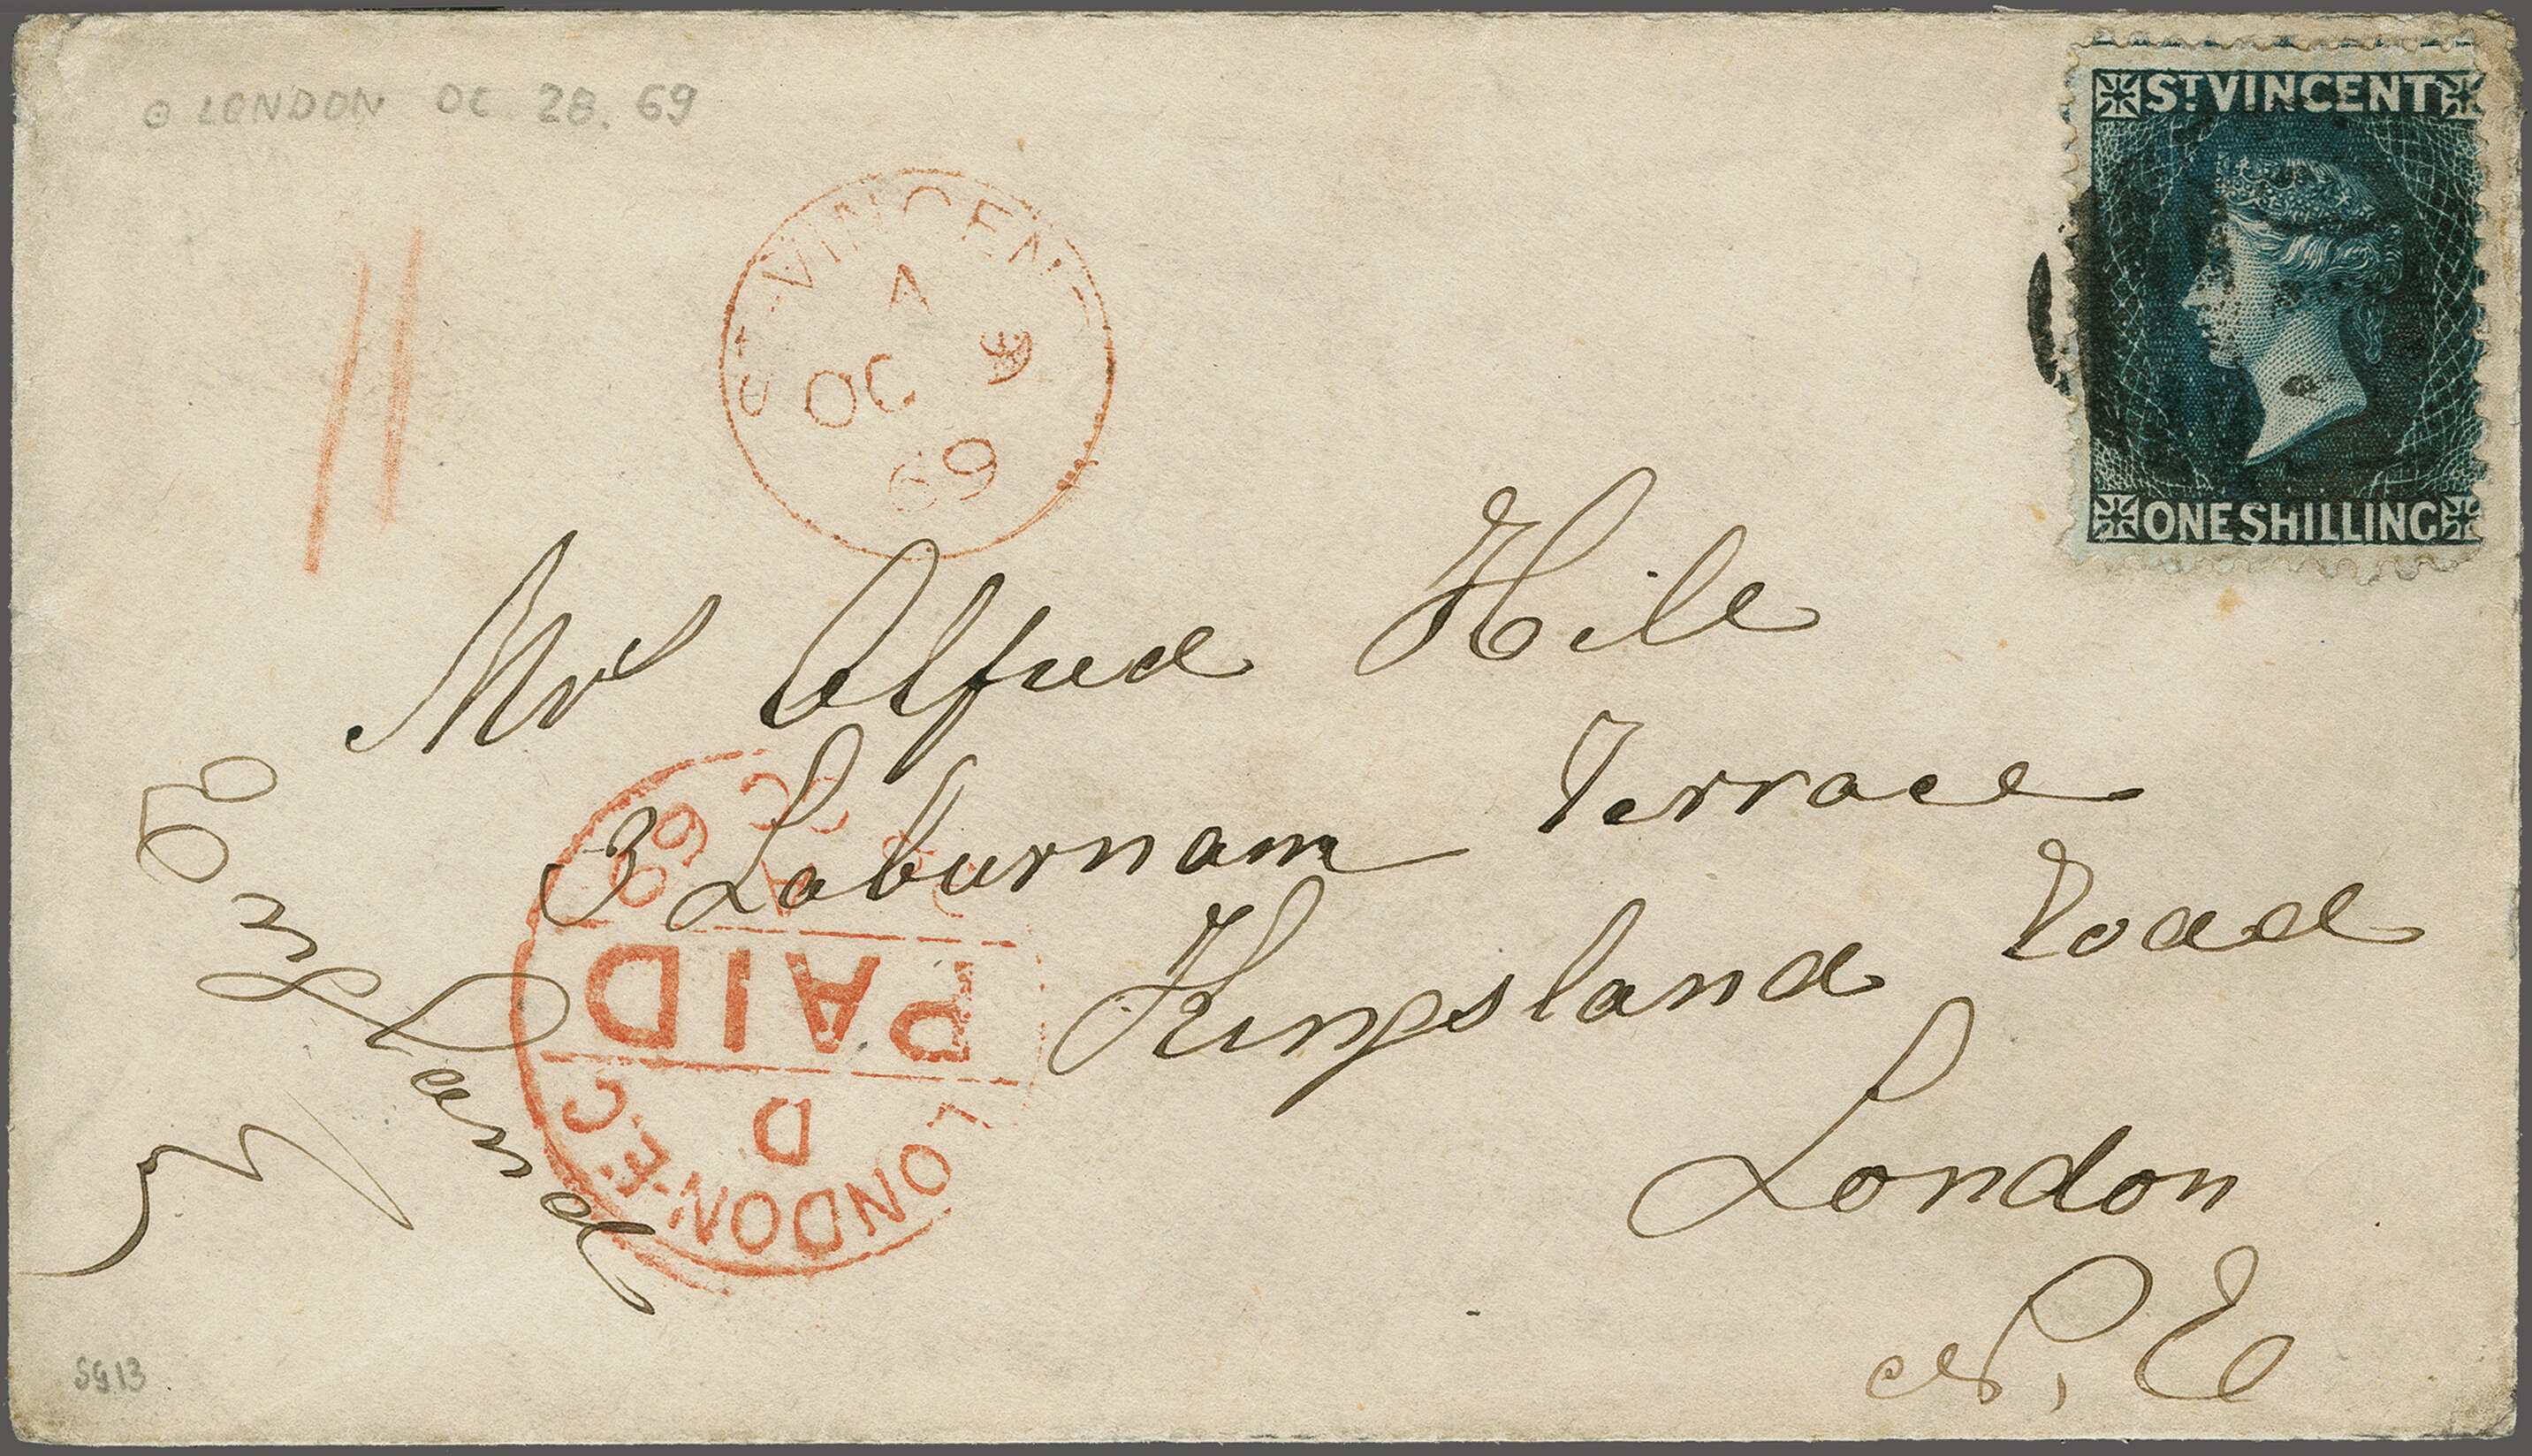 LONDON OC 28. 69
ST VINCENT
ONE SHILLING
ST. VINCENT
A
OC 9
69
Mrs Alfred Hill
3 Laburnam Terrace
Kingsland Road
London
N. E
England
LONDON·E.C
D
PAID
OC
69
SG 13